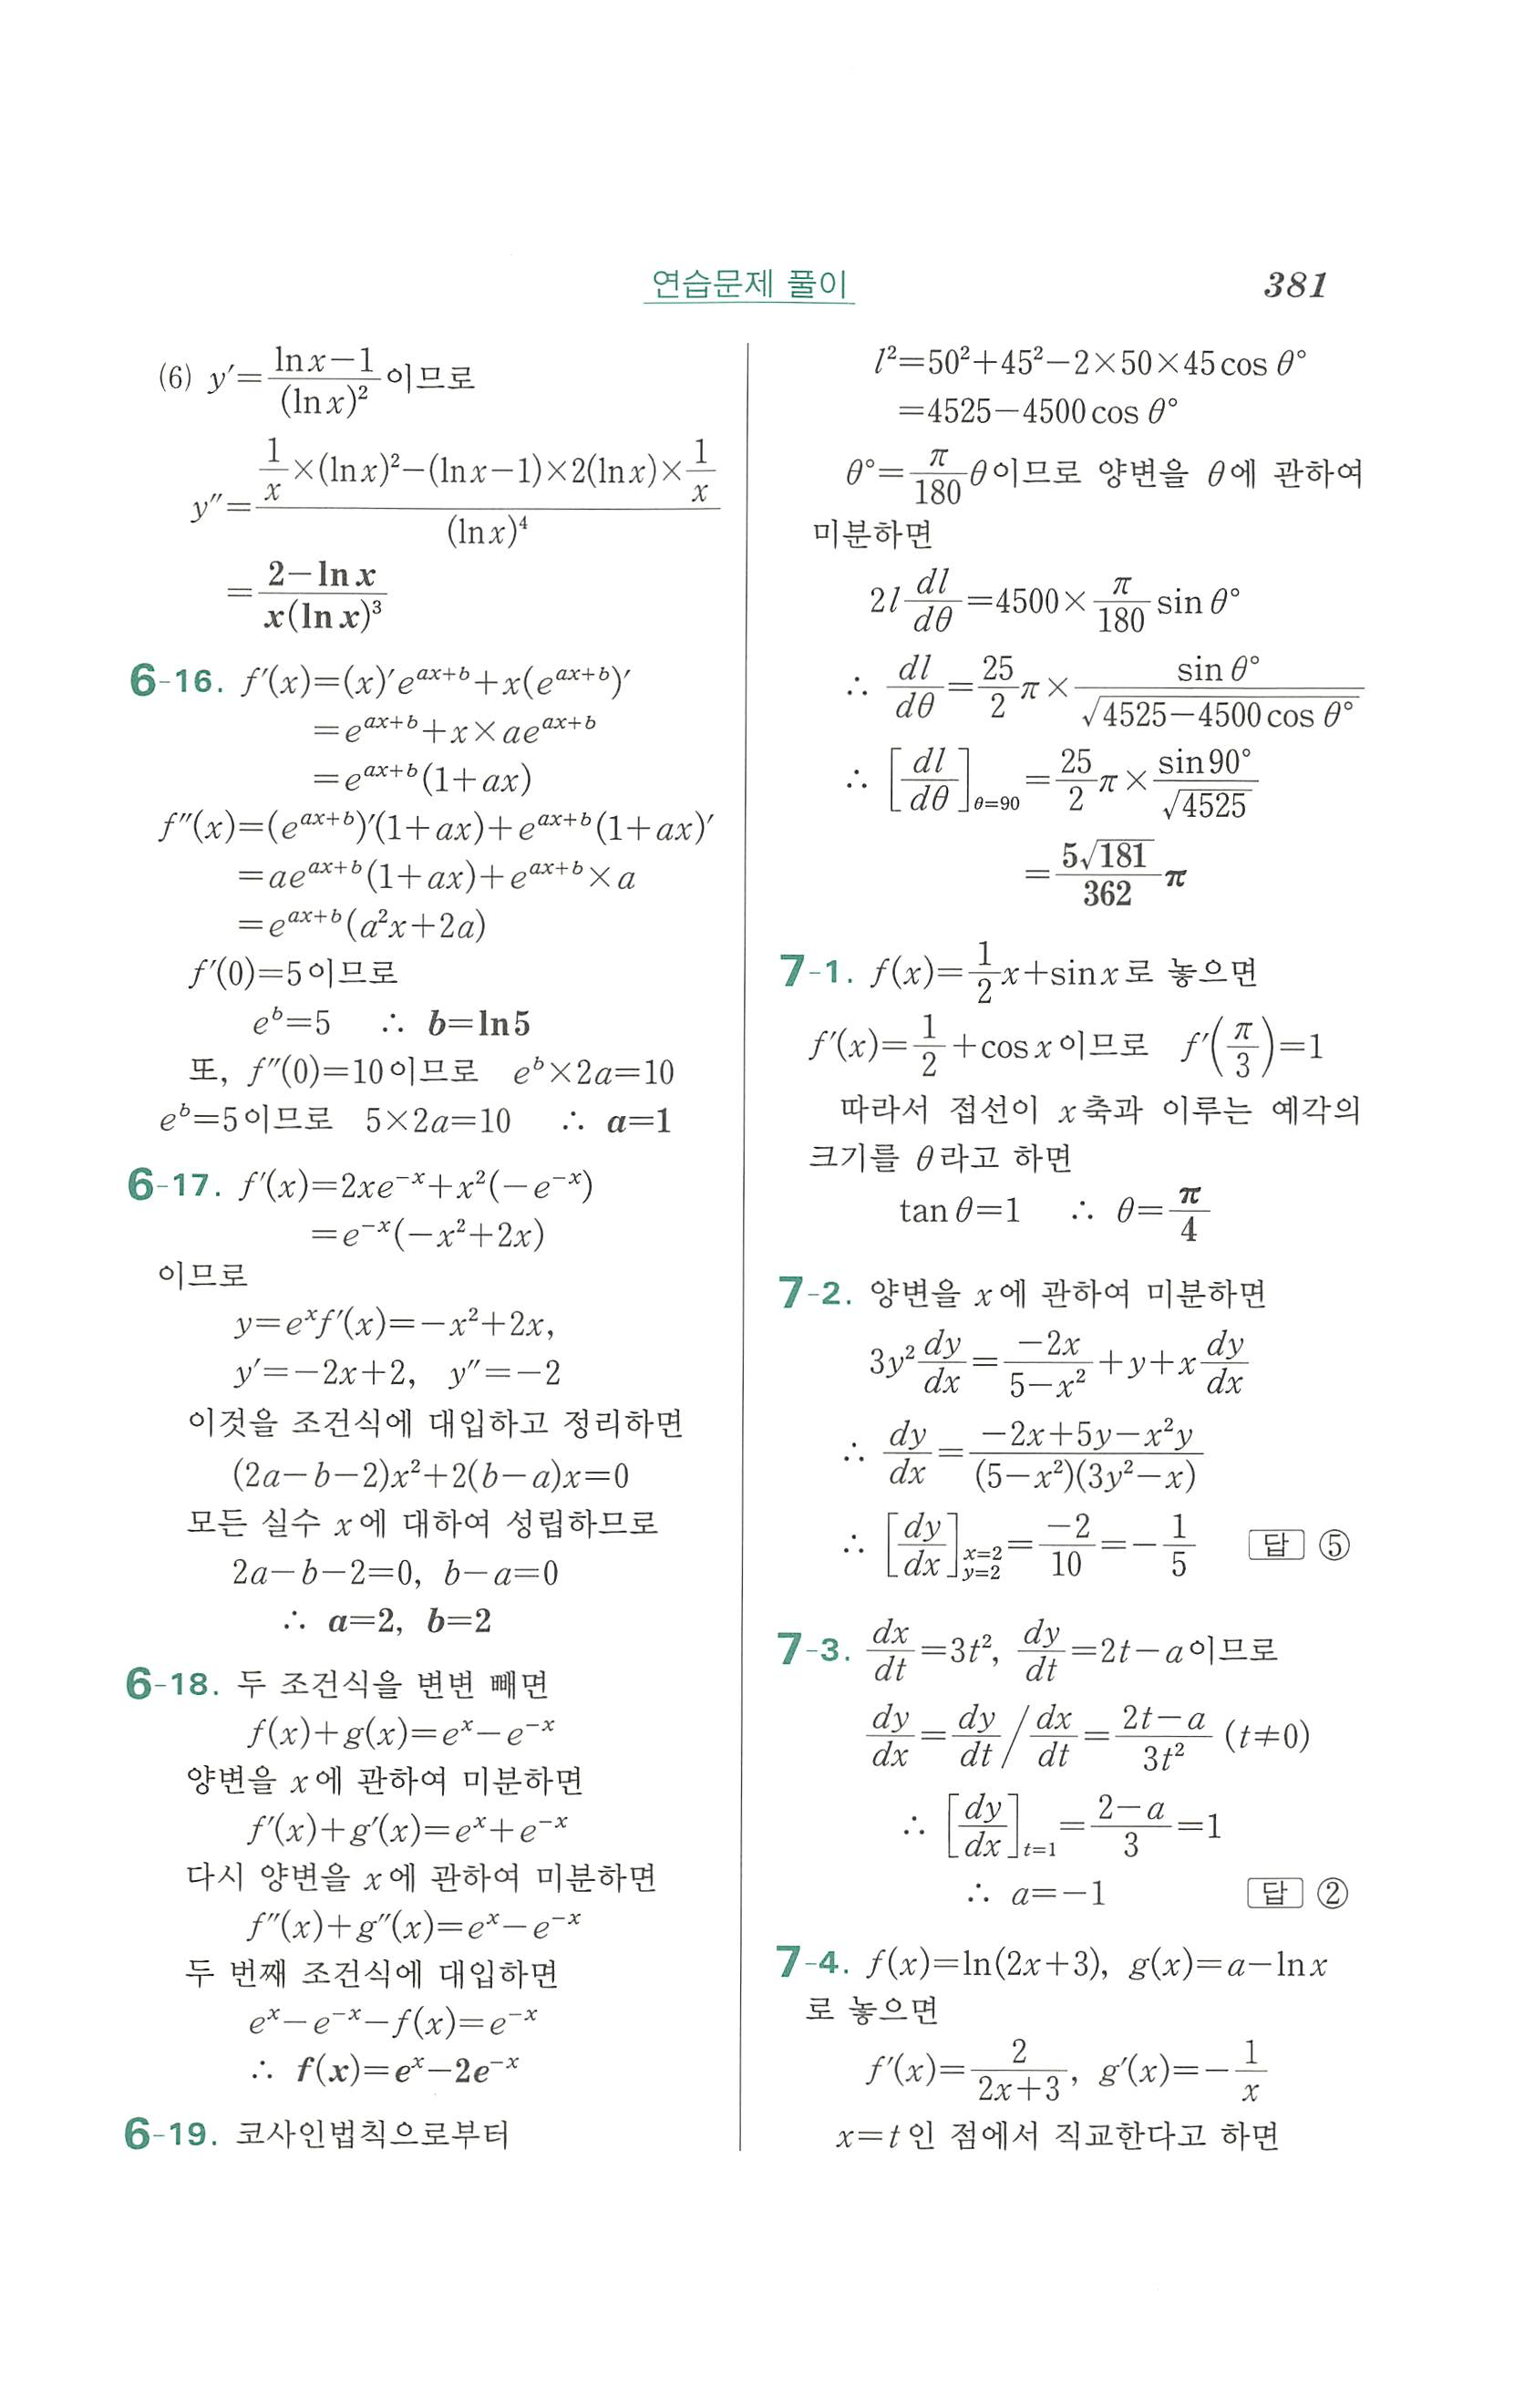 연습문제 풀이
381
(6) y′=\frac{ln x−1}{(ln x)²}이므로
y″=\frac{\frac{1}{x}×(ln x)²−(ln x−1)×2(ln x)×\frac{1}{x}}{(ln x)⁴}
=\frac{2−ln x}{x(ln x)³}
6-16. f′(x)=(x)′e^{ax+b}+x(e^{ax+b})′
=e^{ax+b}+x×ae^{ax+b}
=e^{ax+b}(1+ax)
f″(x)=(e^{ax+b})′(1+ax)+e^{ax+b}(1+ax)′
=ae^{ax+b}(1+ax)+e^{ax+b}×a
=e^{ax+b}(a²x+2a)
f′(0)=5이므로
e^{b}=5 ∴ b=ln5
또, f″(0)=10이므로 e^{b}×2a=10
e^{b}=5이므로 5×2a=10 ∴ a=1
6-17. f′(x)=2xe^{−x}+x²(−e^{−x})
=e^{−x}(−x²+2x)
이므로
y=e^{x}f′(x)=−x²+2x,
y′=−2x+2, y″=−2
이것을 조건식에 대입하고 정리하면
(2a−b−2)x²+2(b−a)x=0
모든 실수 x에 대하여 성립하므로
2a−b−2=0, b−a=0
∴ a=2, b=2
6-18. 두 조건식을 변변 빼면
f(x)+g(x)=e^{x}−e^{−x}
양변을 x에 관하여 미분하면
f′(x)+g′(x)=e^{x}+e^{−x}
다시 양변을 x에 관하여 미분하면
f″(x)+g″(x)=e^{x}−e^{−x}
두 번째 조건식에 대입하면
e^{x}−e^{−x}−f(x)=e^{−x}
∴ f(x)=e^{x}−2e^{−x}
6-19. 코사인법칙으로부터
l²=50²+45²−2×50×45cos θ°
=4525−4500cos θ°
θ°=\frac{π}{180}θ이므로 양변을 θ에 관하여
미분하면
2l\frac{dl}{dθ}=4500×\frac{π}{180}sin θ°
∴ \frac{dl}{dθ}=\frac{25}{2}π×\frac{sin θ°}{\sqrt{4525−4500cos θ°}}
∴ [\frac{dl}{dθ}]_{θ=90}=\frac{25}{2}π×\frac{sin90°}{\sqrt{4525}}
=\frac{5\sqrt{181}}{362}π
7-1. f(x)=\frac{1}{2}x+sin x로 놓으면
f′(x)=\frac{1}{2}+cos x이므로 f′(\frac{π}{3})=1
따라서 접선이 x축과 이루는 예각의
크기를 θ라고 하면
tan θ=1 ∴ θ=\frac{π}{4}
7-2. 양변을 x에 관하여 미분하면
3y²\frac{dy}{dx}=\frac{−2x}{5−x²}+y+x\frac{dy}{dx}
∴ \frac{dy}{dx}=\frac{−2x+5y−x²y}{(5−x²)(3y²−x)}
∴ [\frac{dy}{dx}]_{x=2, y=2}=\frac{−2}{10}=−\frac{1}{5} 답 ⑤
7-3. \frac{dx}{dt}=3t², \frac{dy}{dt}=2t−a이므로
\frac{dy}{dx}=\frac{dy}{dt}/\frac{dx}{dt}=\frac{2t−a}{3t²} (t≠0)
∴ [\frac{dy}{dx}]_{t=1}=\frac{2−a}{3}=1
∴ a=−1 답 ②
7-4. f(x)=ln(2x+3), g(x)=a−ln x
로 놓으면
f′(x)=\frac{2}{2x+3}, g′(x)=−\frac{1}{x}
x=t인 점에서 직교한다고 하면